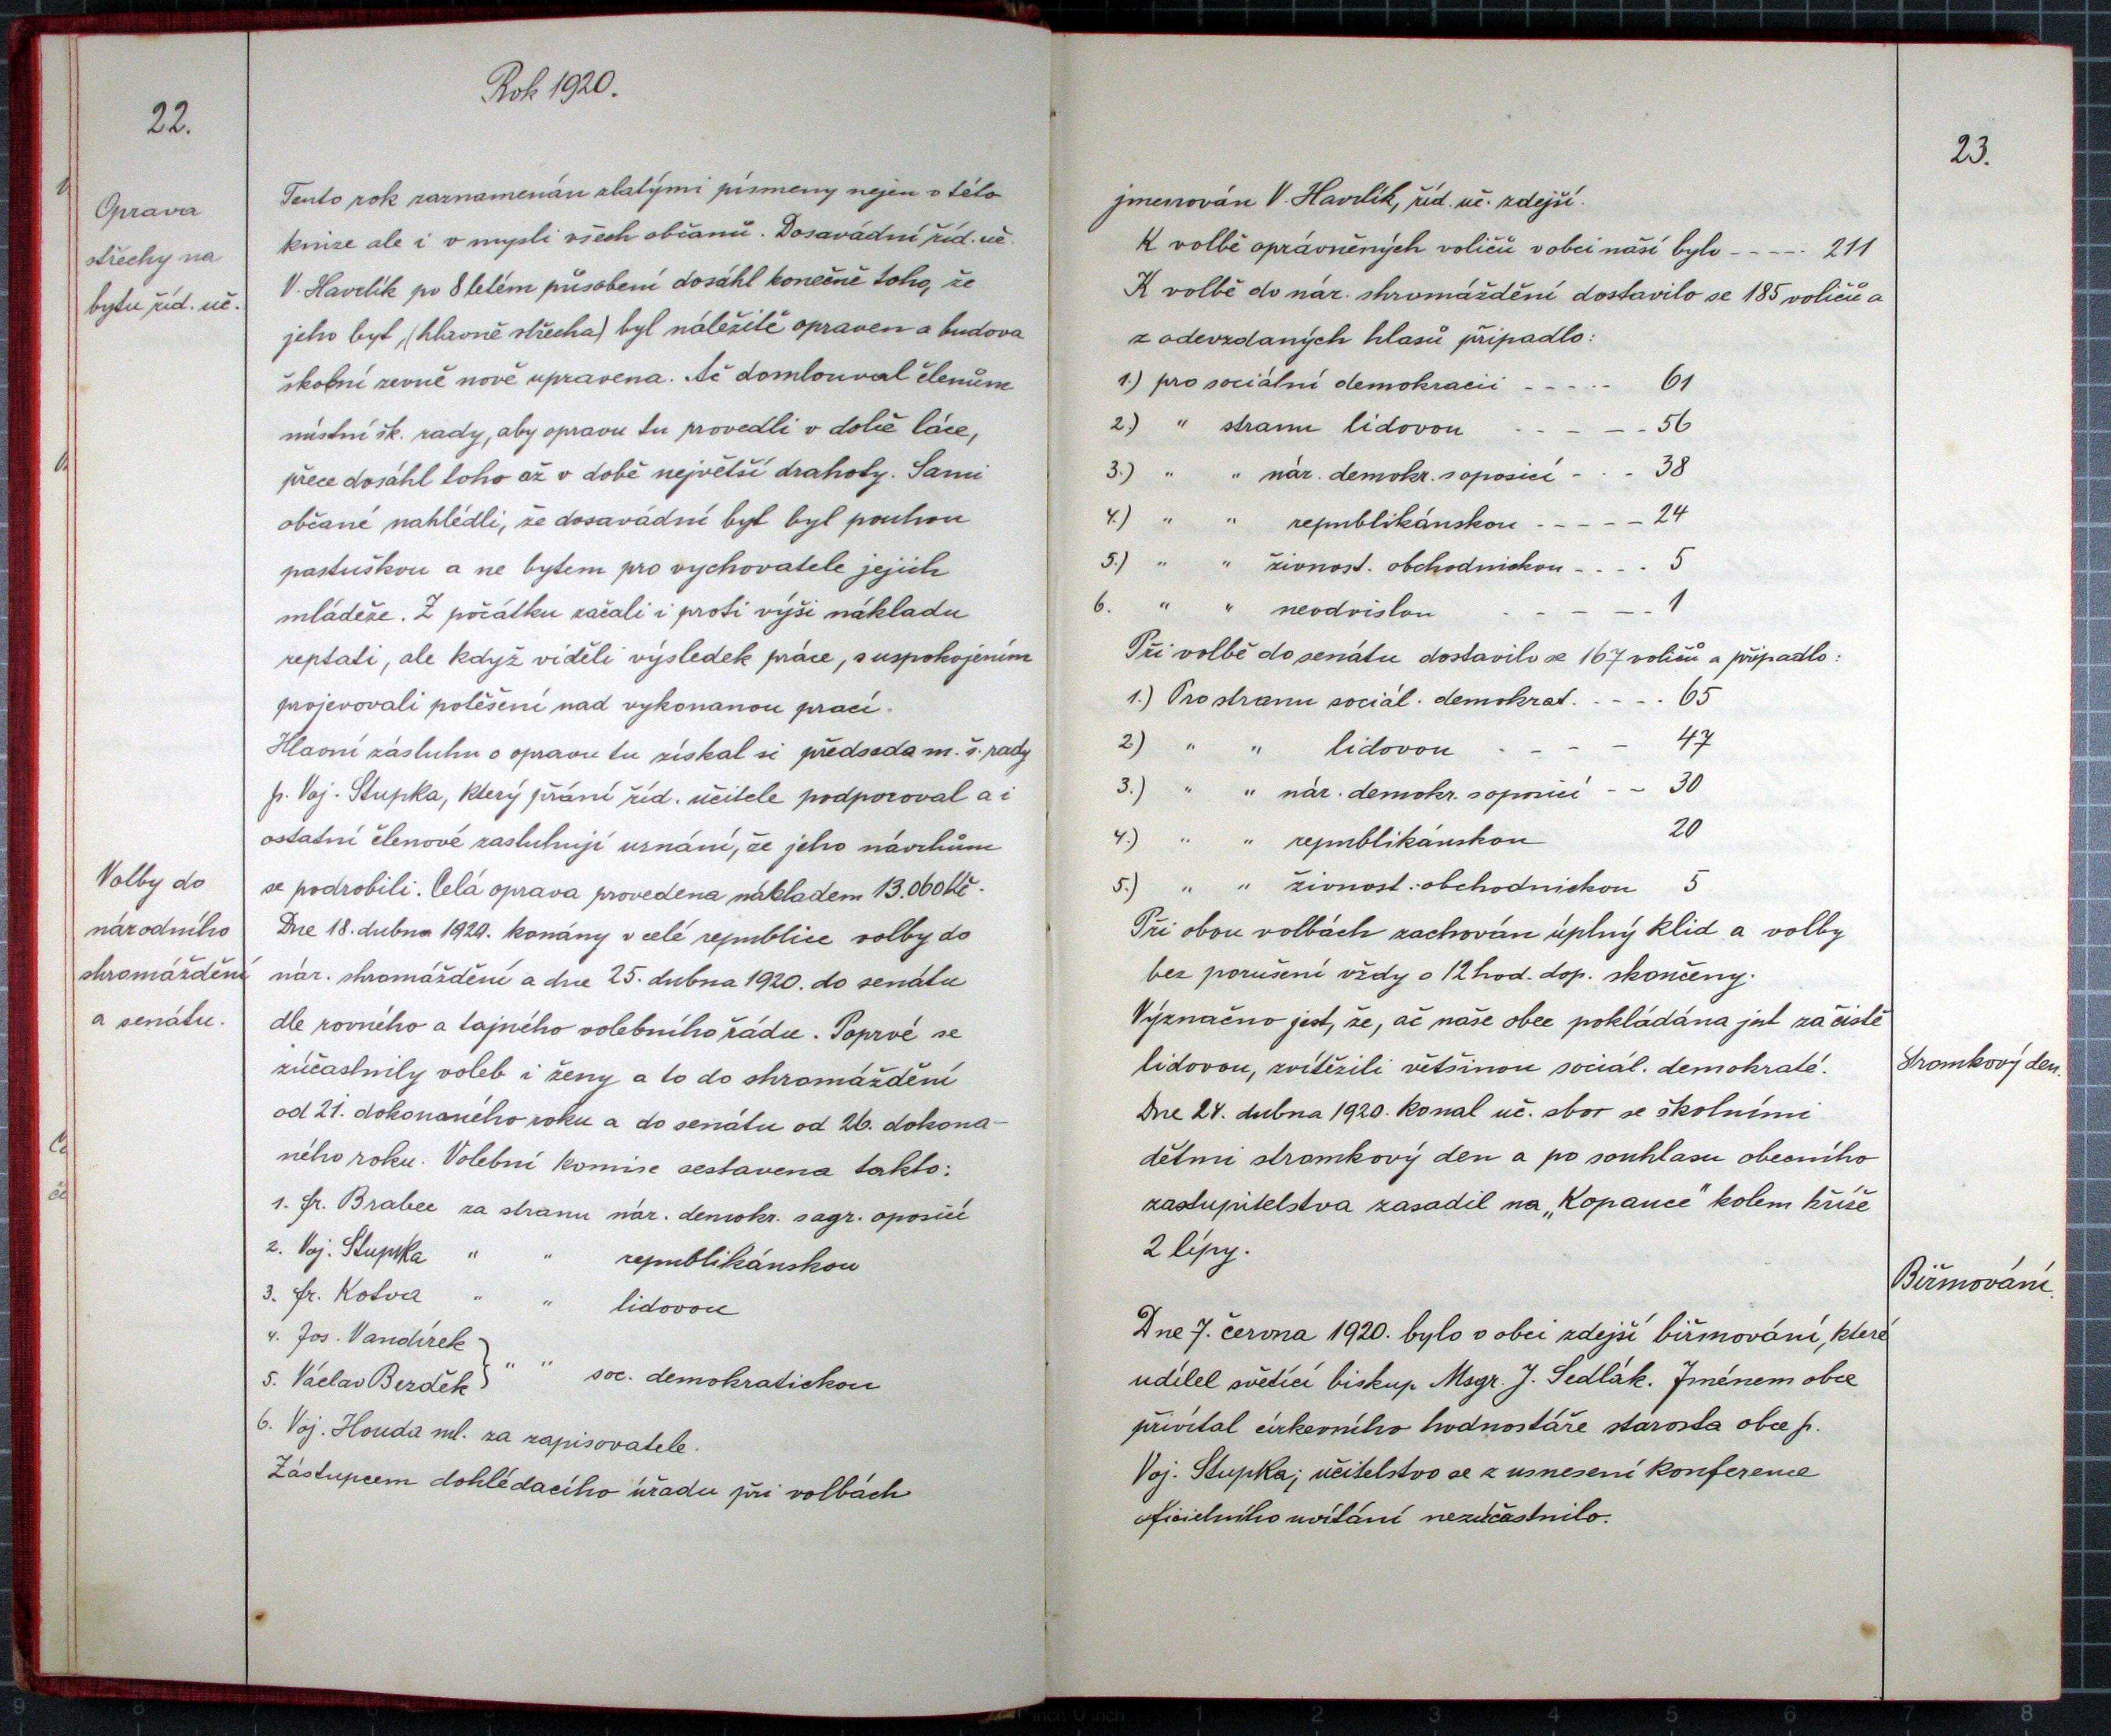 22.
Rok 1920.
Oprava
střechy na
bytu říd. uč.
Tento rok zaznamenán zlatými písmeny nejen v této
knize ale i v mysli všech občanů. Dosavádní říd. uč.
V. Havrlík po 8 letém působení dosáhl konečně toho, že
jeho byt, (hlavně střecha) byl náležitě opraven a budova
školní zevně nově upravena. Ač domlouval členům
místní šk. rady, aby opravu tu provedli v době láce,
přece dosáhl toho až v době největší drahoty. Sami
občané nahlédli, že dosavádní byt byl pouhou
pastuškou a ne bytem pro vychovatele jejich
mládeže. Z počátku začali i proti výši nákladu
reptati, ale když viděli výsledek práce, s uspokojením
projevovali potěšení nad vykonanou prací.
Hlavní zásluhu o opravu tu získal si předseda m. š. rady
p. Voj. Stupka, který přání říd. učitele podporoval a i
ostatní členové zasluhují uznání, že jeho návrhům
se podrobili. Celá oprava provedena nákladem 13.060 Kč.
Volby do
národního
shromáždění
a senátu.
Dne 18. dubna 1920. konány v celé republice volby do
nár. shromáždění a dne 25. dubna 1920. do senátu
dle rovného a tajného volebního řádu. Poprvé se
zúčastnily voleb i ženy a to do shromáždění
od 21. dokonaného roku a do senátu od 26. dokona-
ného roku. Volební komise sestavena takto:
1. Fr. Brabec za stranu nár. demokr. s agr. oposicí
2. Voj. Stupka " " republikánskou
3. Fr. Kotva " " lidovou
4. Jos. Vandírek
5. Václav Bezděk } " " soc. demokratickou
6. Voj. Houda ml. za zapisovatele.
Zástupcem dohlédacího úřadu při volbách
23.
jmenován V. Havrlík, říd. uč. zdejší.
K volbě oprávněných voličů v obci naší bylo ----- 211
K volbě do nár. shromáždění dostavilo se 185 voličů a
z odevzdaných hlasů připadlo:
1.) pro sociální demokracii ----- 61
2.) " stranu lidovou ----- 56
3.) " " nár. demokr. s oposicí --- 38
4.) " " republikánskou ----- 24
5.) " " živnost. obchodnickou ---- 5
6. " " neodvislou ----- 1
Při volbě do senátu dostavilo se 167 voličů a připadlo:
1.) Pro stranu sociál. demokrat. ---- 65
2.) " " lidovou ---- 47
3.) " " nár. demokr. s oposicí -- 30
4.) " " republikánskou 20
5.) " " živnost. obchodnickou 5
Při obou volbách zachován úplný klid a volby
bez porušení vždy o 12 hod. dop. skončeny.
Význačno jest, že, ač naše obec pokládána jest za čistě
lidovou, zvítězili většinou sociál. demokraté.
Stromkový den.
Dne 24. dubna 1920. konal uč. sbor se školními
dětmi stromkový den a po souhlasu obecního
zastupitelstva zasadil na „Kopance" kolem kříže
2 lípy.
Biřmování.
Dne 7. června 1920. bylo v obci zdejší biřmování, které
udílel světící biskup Msgr. J. Sedlák. Jménem obce
přivítal církevního hodnostáře starosta obce p.
Voj. Stupka; učitelstvo se z usnesení konference
oficielního uvítání nezúčastnilo.